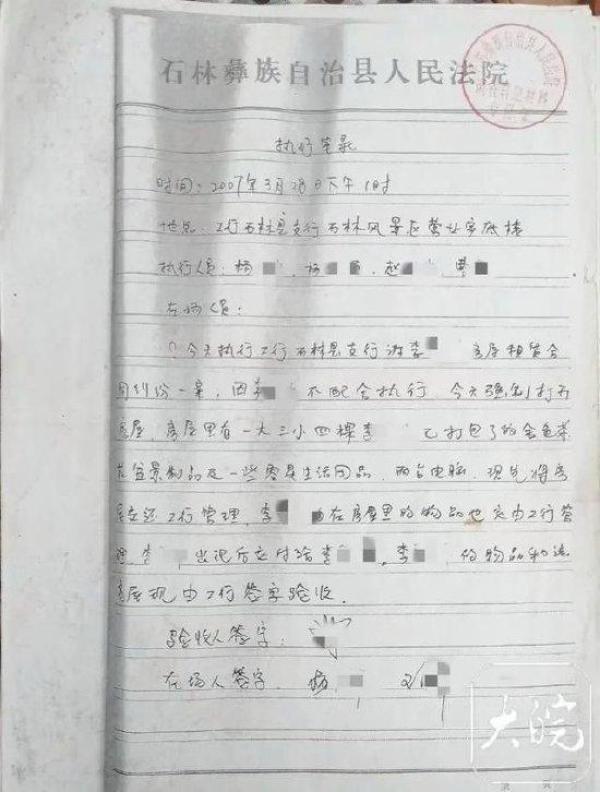 石林彝族自治县人民法院
执行笔录
时间：2007年3月28日下午1时
地点：工行石林县支行石林风景区营业室底楼
执行人员：杨 、杨 、赵 、
在场人员：
今天执行工行石林县支行诉李 房屋租赁合
同纠纷一案，因李 不配合执行，今天强制打开
房屋，房屋里有一大三小四棵李 已打包了的
盆景制品及一些家具生活用品，两台电脑，现先将房
屋交还工行管理，李 在房屋里的物品也交由工行管
理，李 出现后交付给李 ，李 的物品和该
房屋现由工行签字验收．
验收人签字：
在场人签字：杨
大皖